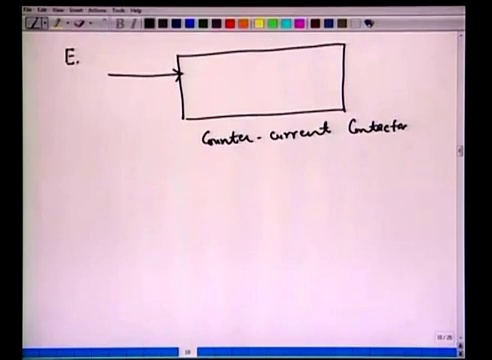 File Edit View Insert Actions Tools Help
B I
E.
Counter-current Contactor